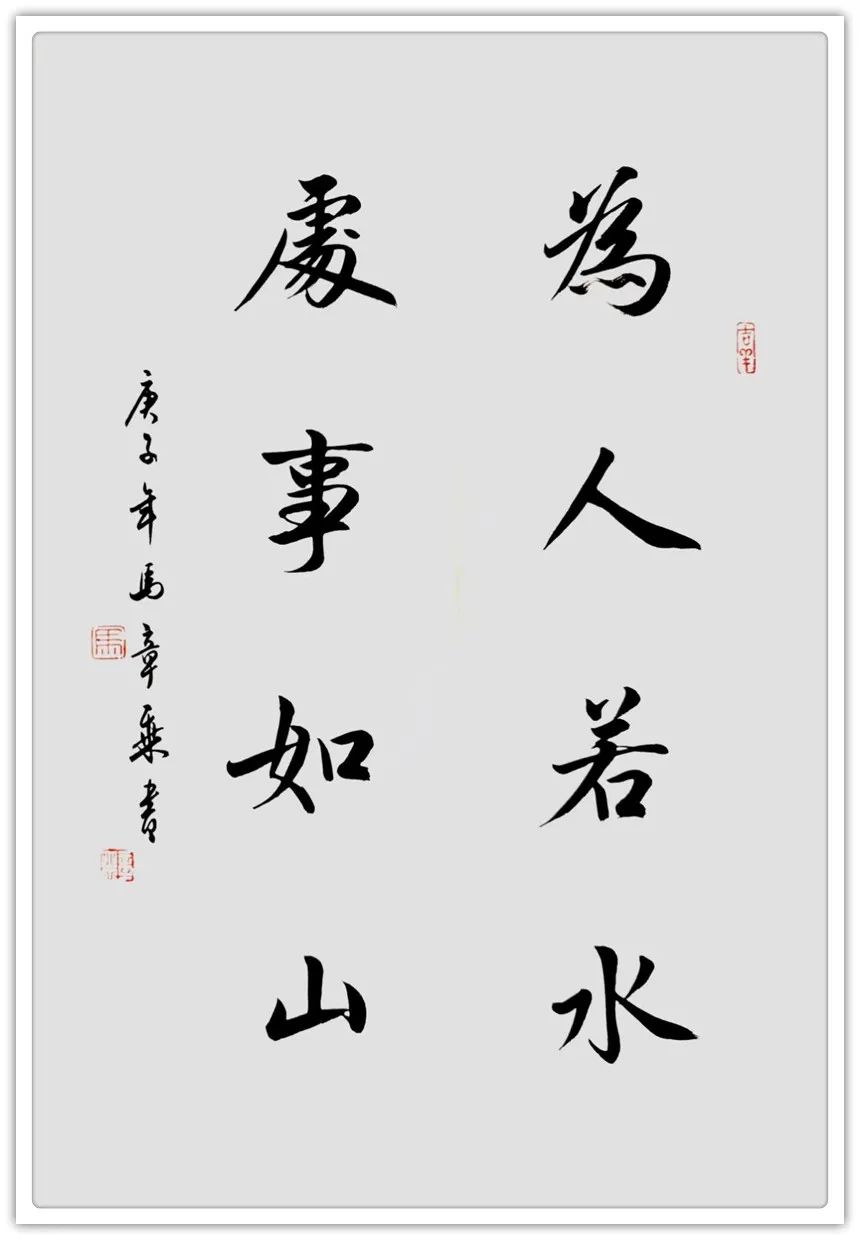 為人若水
處事如山
庚子年馬章乘書
馬